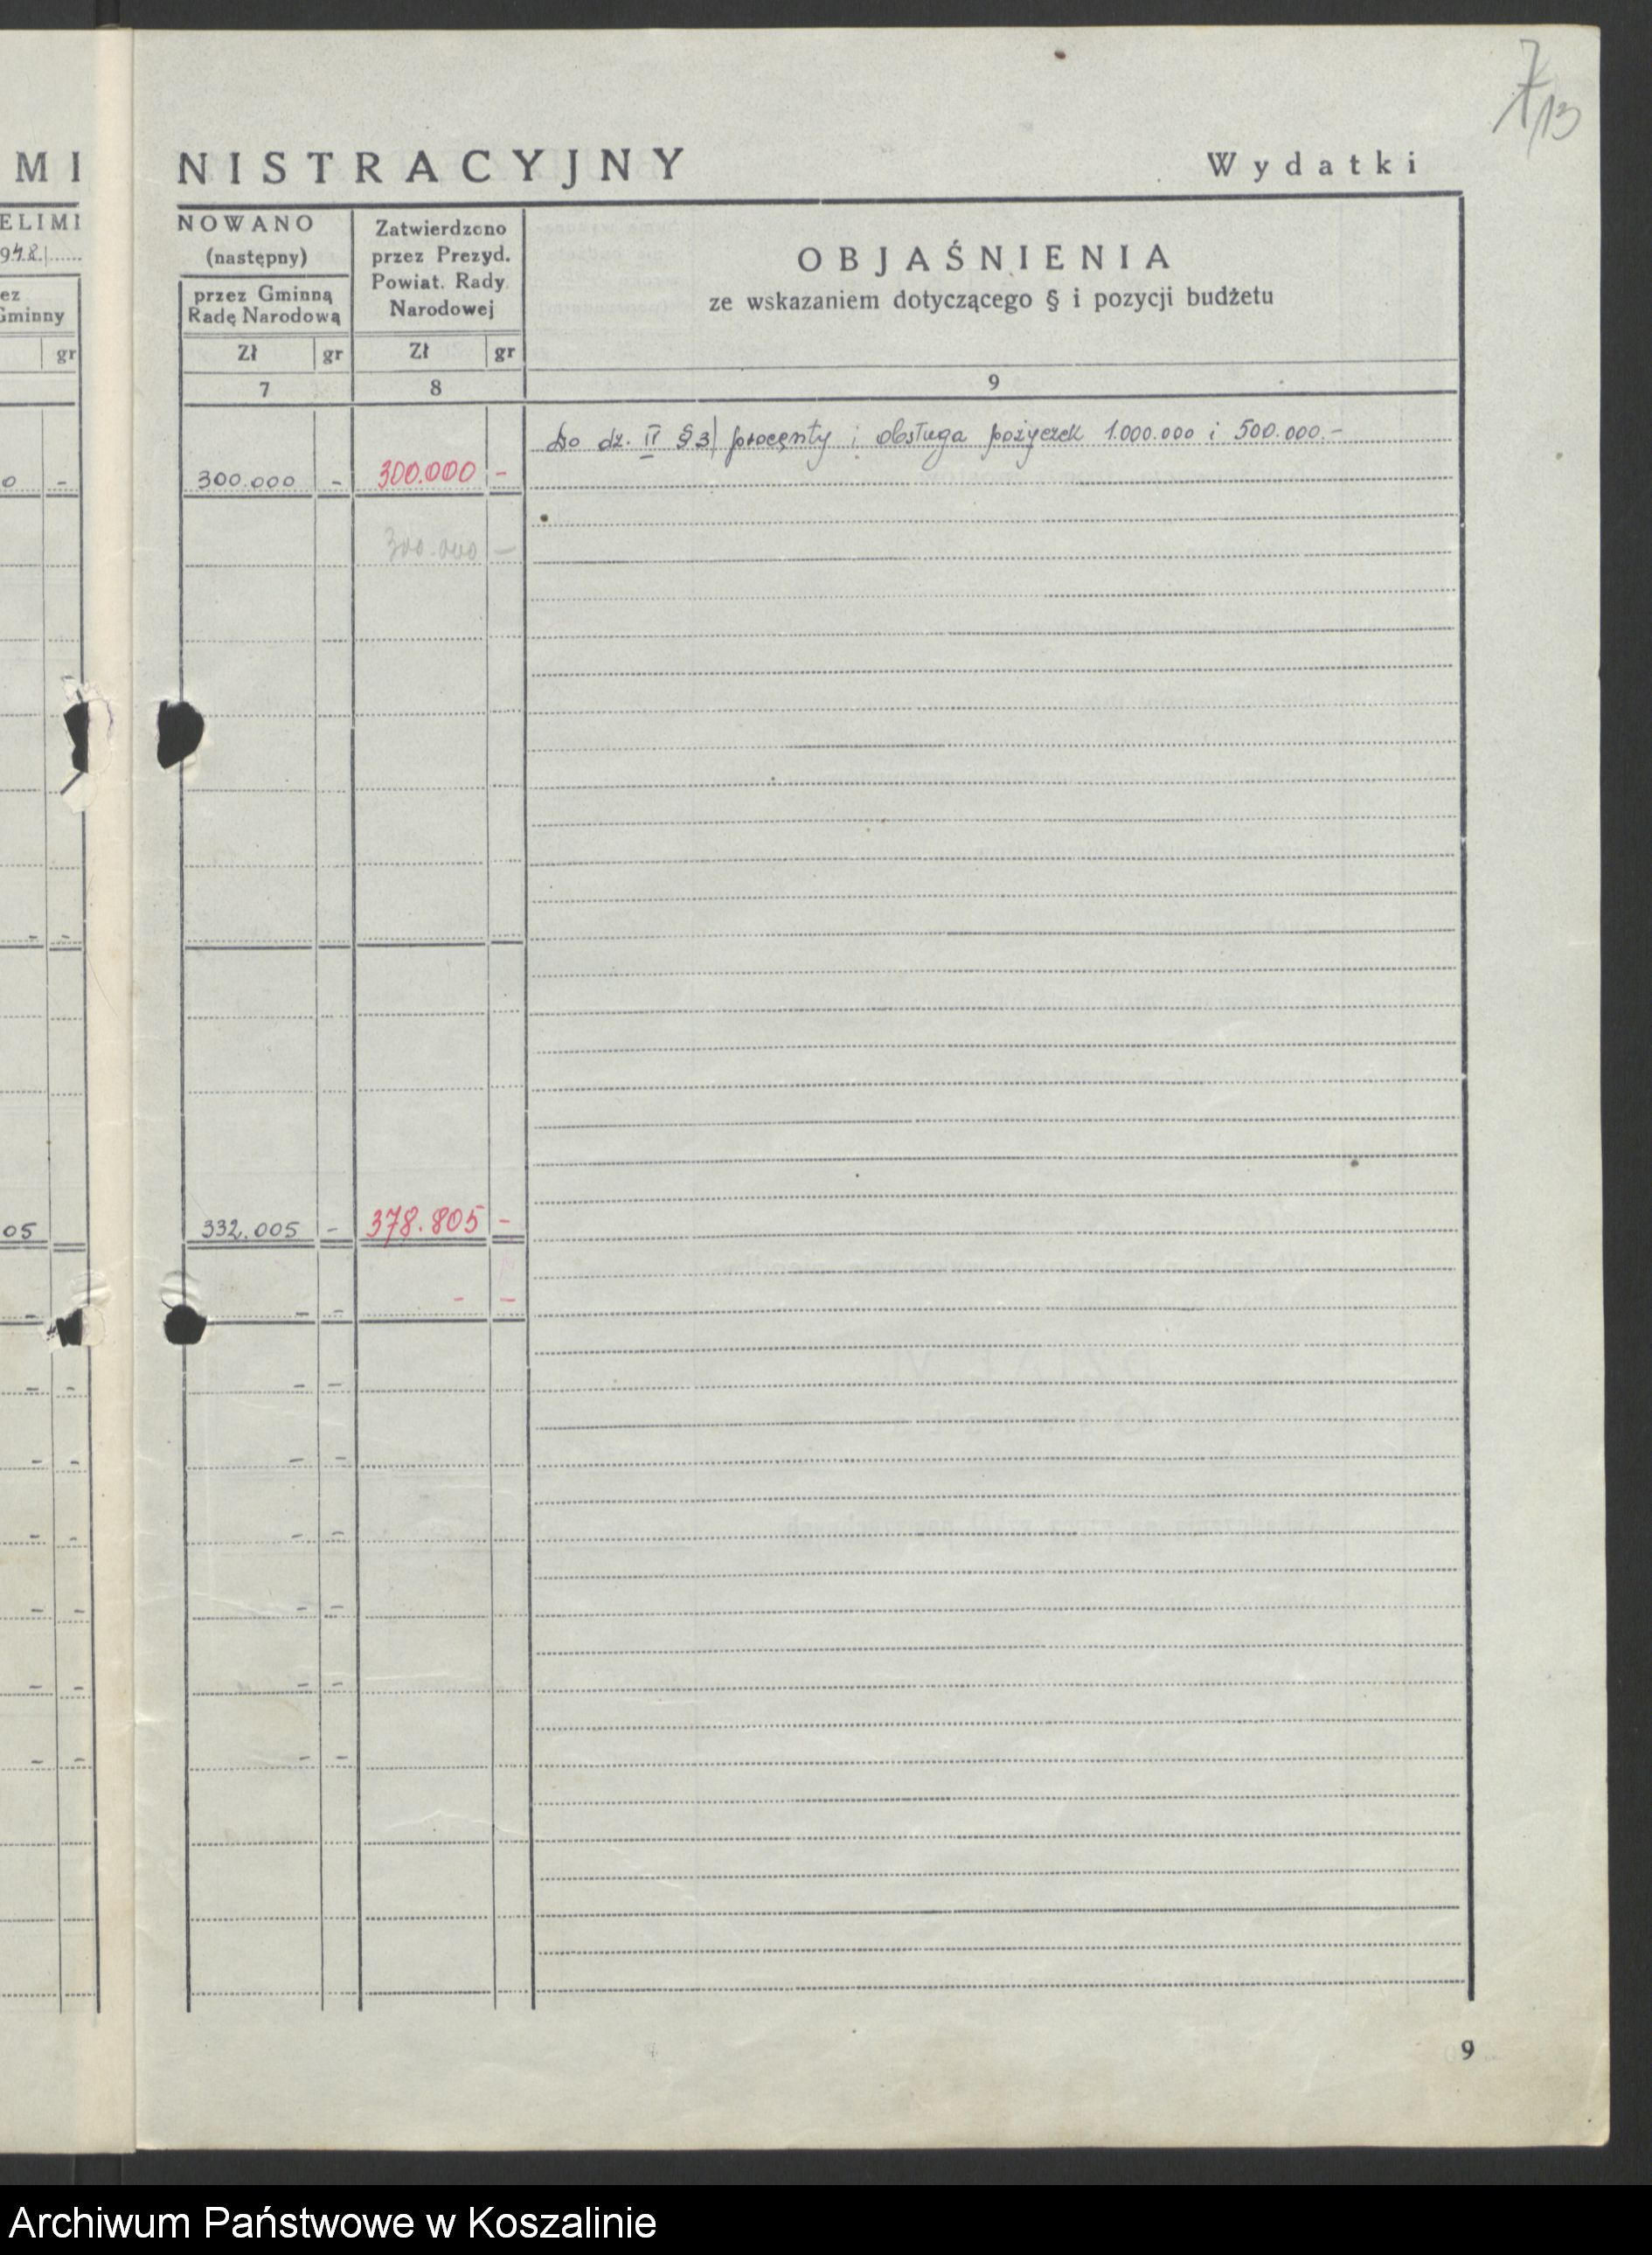 7
13
MI NISTRACYJNY Wydatki
ELIMI
948.
ez
Gminny
gr
NOWANO
(następny)
przez Gminną
Radę Narodową
Zł gr
7
Zatwierdzono
przez Prezyd.
Powiat. Rady
Narodowej
Zł gr
8
OBJAŚNIENIA
ze wskazaniem dotyczącego § i pozycji budżetu
9
Do dz. II § 3) procenty i obsługa pożyczek 1.000.000 i 500.000.-
0 - 300.000 - 300.000 -
300.000 -
- -
05 332.005 - 378.805 -
- - - - -
- - - -
- - - -
- - - -
- - - -
- - - -
- - - -
9
Archiwum Państwowe w Koszalinie